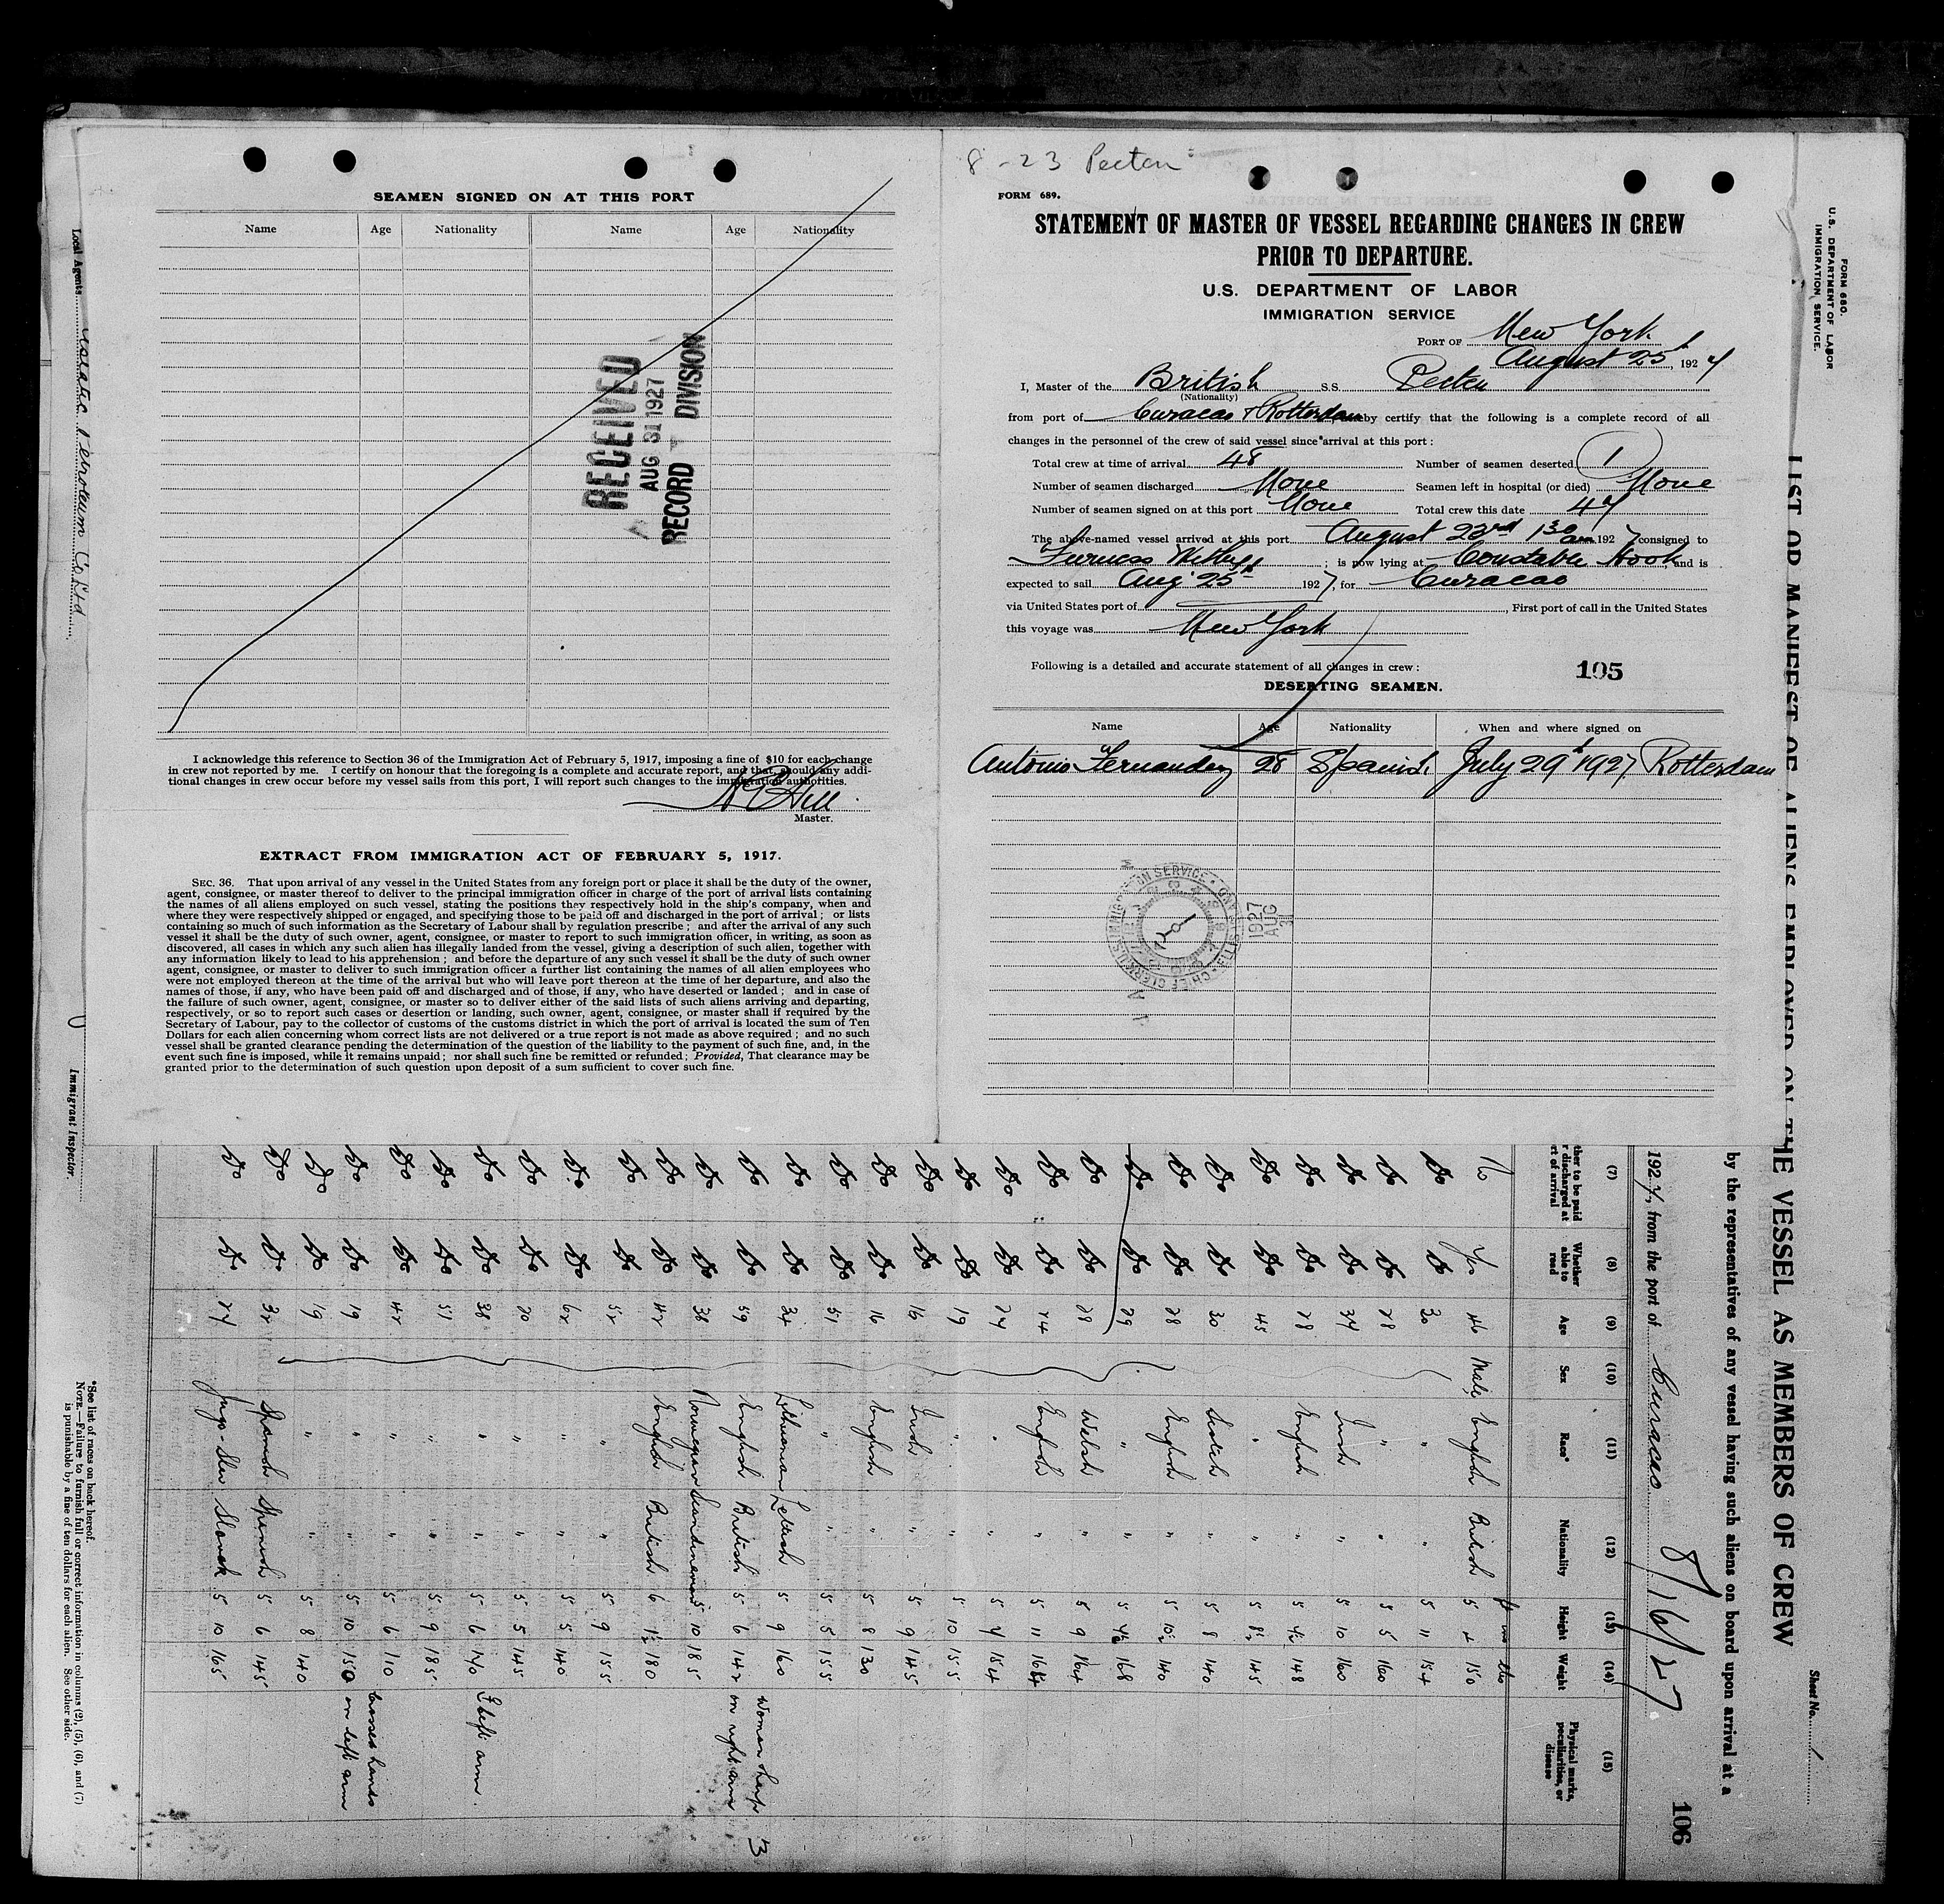 SEAMEN SIGNED ON AT THIS PORT
Name Age Nationality Name Age Nationality
RECEIVED
AUG 31 1927
RECORD DIVISION
I acknowledge this reference to Section 36 of the Immigration Act of February 5, 1917, imposing a fine of $10 for each change
in crew not reported by me. I certify on honour that the foregoing is a complete and accurate report, and that should any addi-
tional changes in crew occur before my vessel sails from this port, I will report such changes to the immigration authorities.
Hill
Master.
EXTRACT FROM IMMIGRATION ACT OF FEBRUARY 5, 1917.
SEC. 36. That upon arrival of any vessel in the United States from any foreign port or place it shall be the duty of the owner,
agent, consignee, or master thereof to deliver to the principal immigration officer in charge of the port of arrival lists containing
the names of all aliens employed on such vessel, stating the positions they respectively hold in the ship's company, when and
where they were respectively shipped or engaged, and specifying those to be paid off and discharged in the port of arrival; or lists
containing so much of such information as the Secretary of Labour shall by regulation prescribe; and after the arrival of any such
vessel it shall be the duty of such owner, agent, consignee, or master to report to such immigration officer, in writing, as soon as
discovered, all cases in which any such alien has illegally landed from the vessel, giving a description of such alien, together with
any information likely to lead to his apprehension; and before the departure of any such vessel it shall be the duty of such owner
agent, consignee, or master to deliver to such immigration officer a further list containing the names of all alien employees who
were not employed thereon at the time of the arrival but who will leave port thereon at the time of her departure, and also the
names of those, if any, who have been paid off and discharged and of those, if any, who have deserted or landed; and in case of
the failure of such owner, agent, consignee, or master so to deliver either of the said lists of such aliens arriving and departing,
respectively, or so to report such cases or desertion or landing, such owner, agent, consignee, or master shall if required by the
Secretary of Labour, pay to the collector of customs of the customs district in which the port of arrival is located the sum of Ten
Dollars for each alien concerning whom correct lists are not delivered or a true report is not made as above required; and no such
vessel shall be granted clearance pending the determination of the question of the liability to the payment of such fine, and, in the
event such fine is imposed, while it remains unpaid; nor shall such fine be remitted or refunded; Provided, That clearance may be
granted prior to the determination of such question upon deposit of a sum sufficient to cover such fine.
8-23 Pecten
FORM 689.
STATEMENT OF MASTER OF VESSEL REGARDING CHANGES IN CREW
PRIOR TO DEPARTURE.
U.S. DEPARTMENT OF LABOR
IMMIGRATION SERVICE
PORT OF New York
August 25th, 1927
I, Master of the British S.S. Pecten
(Nationality)
from port of Curacao & Rotterdam hereby certify that the following is a complete record of all
changes in the personnel of the crew of said vessel since arrival at this port:
Total crew at time of arrival 48 Number of seamen deserted 1
Number of seamen discharged None Seamen left in hospital (or died) None
Number of seamen signed on at this port None Total crew this date 47
The above-named vessel arrived at this port August 22nd 1 30 am 1927 consigned to
Furness Withy; is now lying at Constable Hook, and is
expected to sail Aug 25th 1927, for Curacao
via United States port of , First port of call in the United States
this voyage was New York
Following is a detailed and accurate statement of all changes in crew: 105
DESERTING SEAMEN.
Name Age Nationality When and where signed on
Antonio Fernandez 28 Spanish July 29th 1927 Rotterdam
CHIEF CLERK U.S. IMMIGRATION SERVICE ELLIS ISLAND
1927 AUG
Local Agents Asiatic Petroleum Co Ltd
Immigrant Inspector.
FORM 680.
U.S. DEPARTMENT OF LABOR
IMMIGRATION SERVICE.
Sheet No. 1
LIST OR MANIFEST OF ALIENS EMPLOYED ON THE VESSEL AS MEMBERS OF CREW
by the representatives of any vessel having such aliens on board upon arrival at a
1927, from the port of Curacao 8/16/27 106
(7) (8) (9) (10) (11) (12) (13) (14) (15)
Whether able to read Age Sex Race* Nationality Height Weight Physical marks, peculiarities, or disease
No Yes 46 Male English British 5 4 150
Do Do 30 " " 5 11 154
Do Do 28 " " 5 5 160
Do Do 34 Irish " 5 10 160
Do Do 28 English " 5 4½ 148
Do Do 45 " " 5 8½ 145
Do Do 30 Scotch " 5 8 140
Do Do 28 English " 5 10½ 140
Do Do 29 " " 5 4½ 168
Do Do 28 Welsh " 5 9 164
Do Do 24 English " 5 11 164
Do Do 24 " " 5 4 154
Do Do 19 " " 5 10 155
Do Do 16 Irish " 5 9 145
Do Do 16 English " 5 8 130
Do Do 51 " " 5 5 155
Do Do 34 Lithuanian Lettish 5 9 160
Do Do 59 English British 5 6 142 Woman harp on right arm
Do Do 38 Norwegian Scandinavian 5 10 185
Do Do 42 English British 6 1½ 180
Do Do 52 " " 5 9 155
Do Do 62 " " 5 5 140
Do Do 20 " " 5 5 145
Do Do 38 " " 5 6 140 left arm
Do Do 51 " " 5 9 185
Do Do 42 " " 5 6 110
Do Do 19 " " 5 10 150 crosses hands on left arm
Do Do 19 " " 5 8 140
Do Do 32 Spanish Spanish 5 6 145
Do Do 24 Jugo-Slav Slovak 5 10 165
3
*See list of races on back hereof.
NOTE.—Failure to furnish full or correct information in columns (2), (5), (6), and (7)
is punishable by a fine of ten dollars for each alien. See other side.